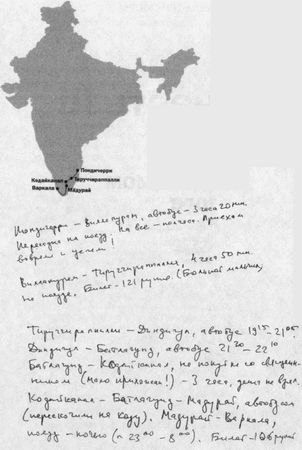 Пондичерри
Кодайканал
Тируччираппалли
Варкала
Мадурай
Пондичерри – Виллупурам, автобус – 3 часа 20 мин.
Пересадка на поезд. На все – полчаса. Приехали
вовремя и успели!
Виллупурам – Тируччираппалли, 4 часа 50 мин.
на поезде. Билет – 121 рупию. (Большой малыш,
Тируччираппалли – Диндигул, автобус 19 15 – 21 05.
Диндигул – Батлагунд, автобус 21 20 – 22 10
Батлагунд – Кодайканал, на попутке со священ-
ником (моно прихожан!) – 3 часа, денег не взял.
Кодайканал – Батлагунд – Мадурай, автобусом
(перескочили на ходу). Мадурай – Варкала,
поезд – ночью (с 23 00 – 8 00). Билет – 126 рупий